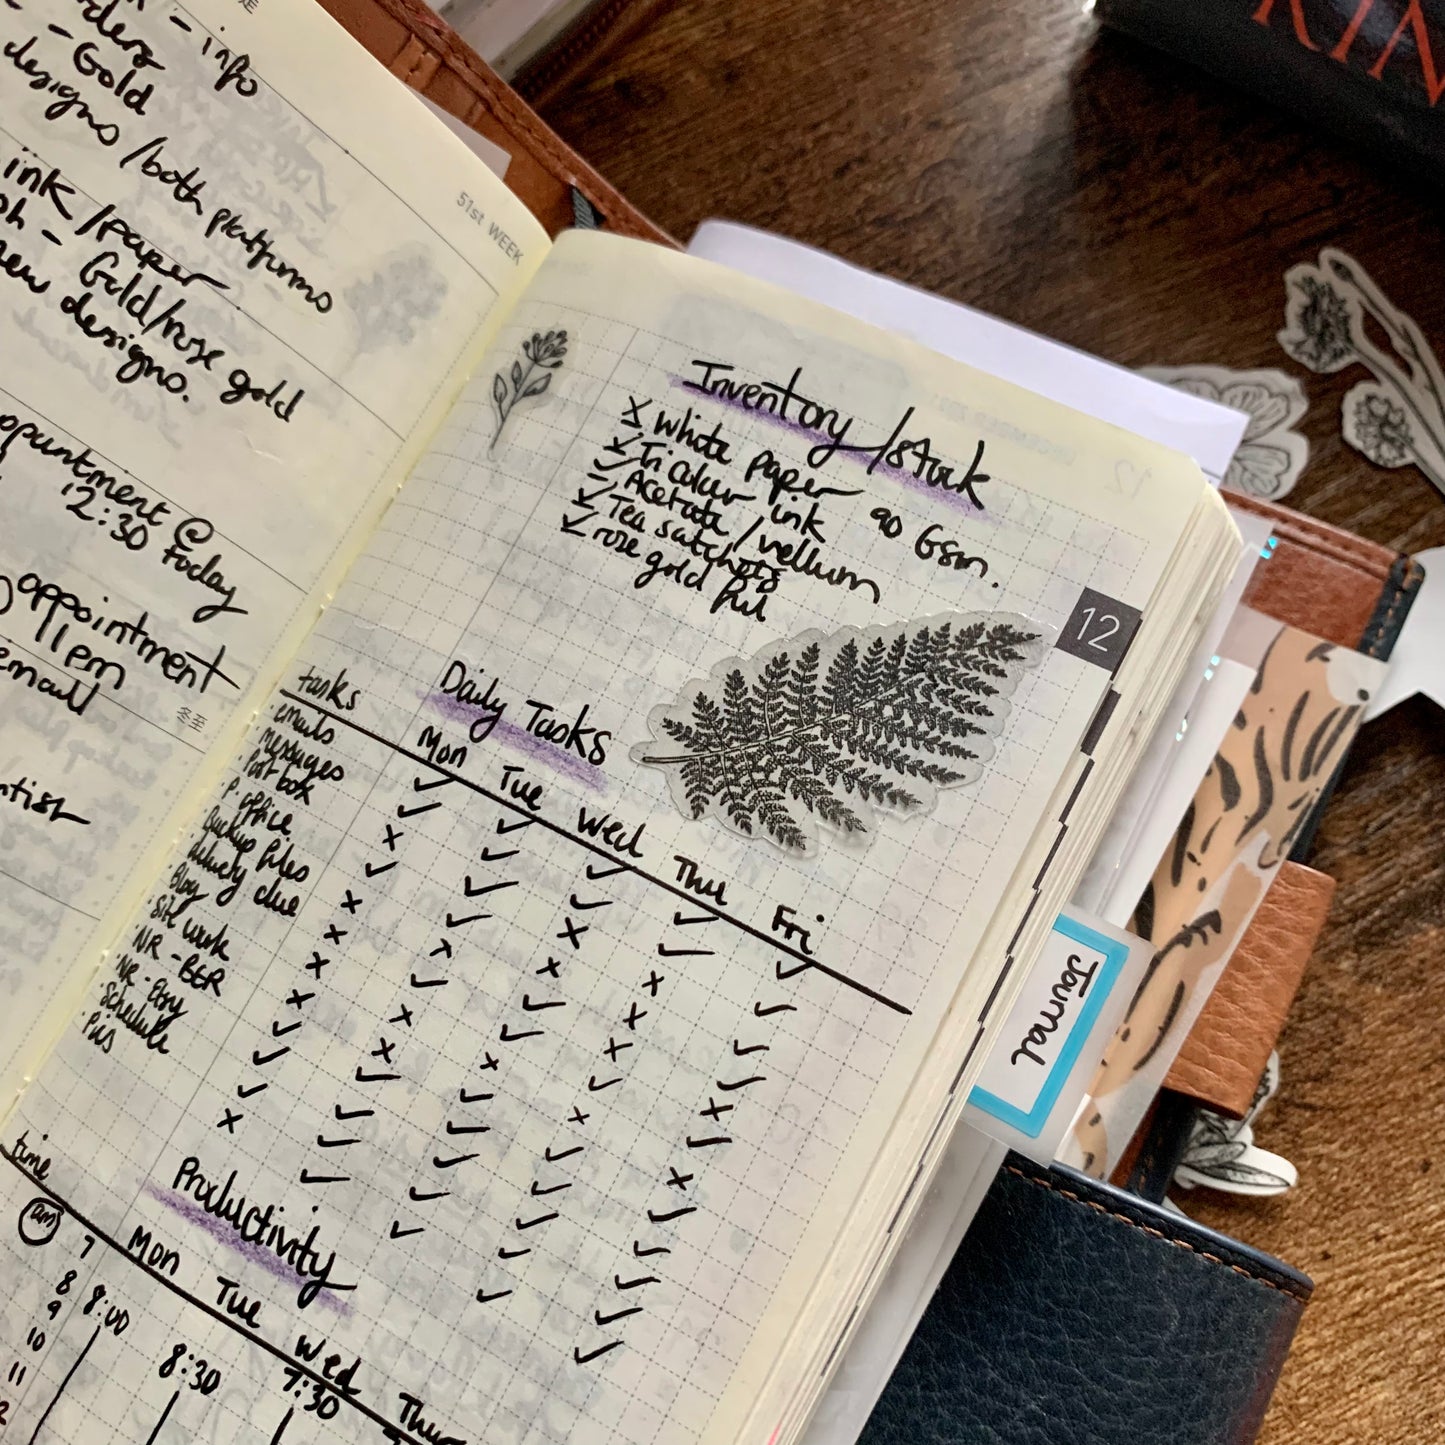 - info
- Gold
designs / both platforms
ink / paper
- Gold/rose gold
new designs.
@
12:30 today
appointment
11 am
email
51st WEEK
冬至
Inventory / stock
x White paper 90 Gsm.
✓ Tri colour ink
✓ Acetate / vellum
✓ Tea satchets
✓ rose gold
12
Daily Tasks
tasks Mon Tue Wed Thu Fri
· emails
· messages
· Post box
· P. office
· Backup files
· delivery clue
· Blog
· site work
· NR - BER
· NR - Etsy
· Schedule
· Pics
Productivity
time Mon Tue Wed Thur
am 7
8 8:00 8:30 7:30
9
10
11
Journal
RIN